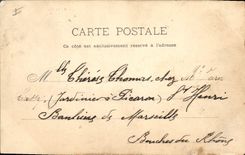 CARTE POSTALE
Ce côté est exclusivement réservé à l'adresse
Mlle Thérèse chez
(Jardinier à St Henri
Banlieue de Marseille
Bouches du Rhône